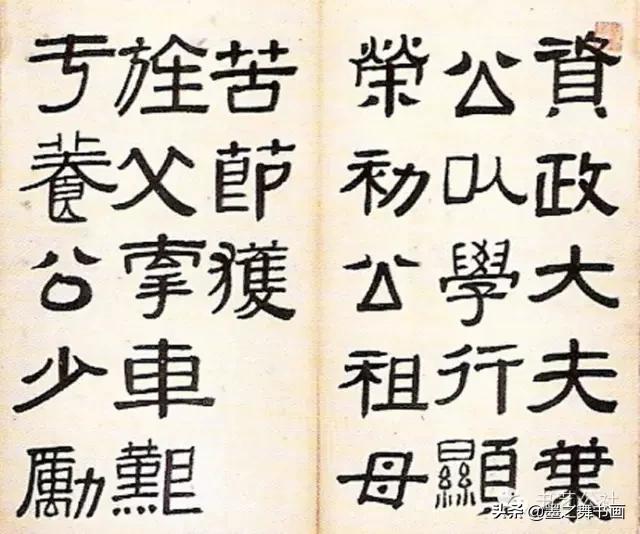 資政大夫葉
公㕥學行顯
榮初公祖母
苦節獲
旌父牽車艱
亏養公少勵
头条 @墨之舞书画